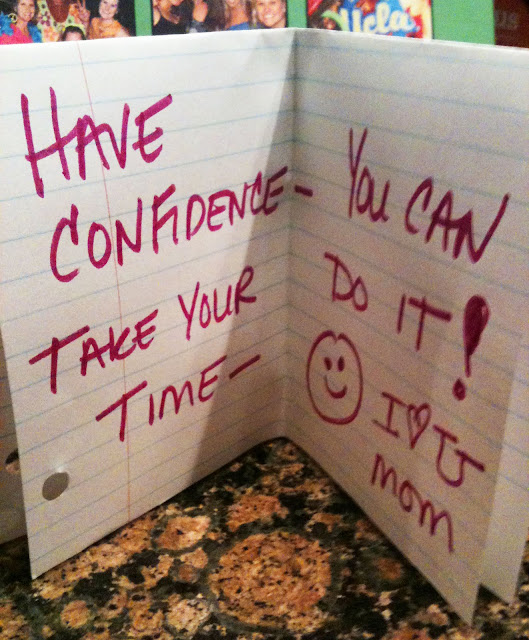 HAVE
CONFIDENCE—
TAKE YOUR
TIME—
YOU CAN
DO IT!
I ♡ U
mom
Ucla